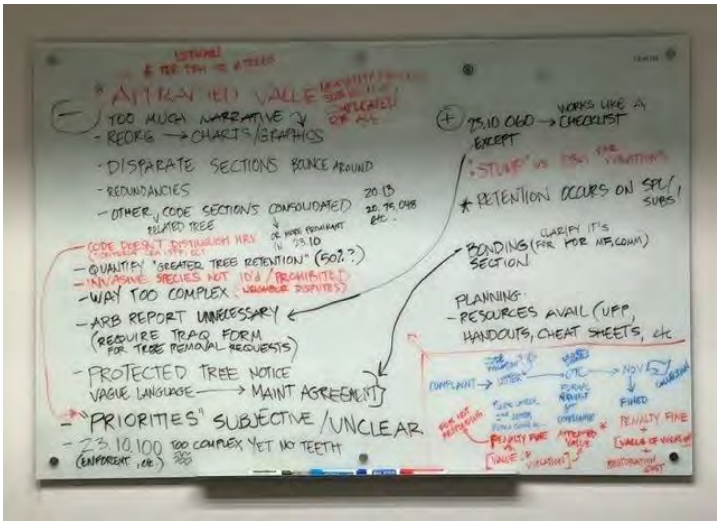 * PER TPM OR ATREES
* APPRAISED VALUE
TOO MUCH NARRATIVE
- REORG → CHARTS/GRAPHICS
- DISPARATE SECTIONS BOUNCE AROUND
- REDUNDANCIES
- OTHER CODE SECTIONS CONSOLIDATED
RELATED TREE
20.13
20.75.048
etc.
OR MORE PROMINANT
IN 23.10
- CODE DOESN'T DISTINGUISH
- QUANTIFY "GREATER TREE RETENTION" (50%?)
- INVASIVE SPECIES NOT ID'd / PROHIBITED
- WAY TOO COMPLEX (NEIGHBOR DISPUTES)
- ARB REPORT UNNECESSARY
(REQUIRE TRAQ FORM
FOR TREE REMOVAL REQUESTS)
- PROTECTED TREE NOTICE
VAGUE LANGUAGE → MAINT AGREEMENT
- "PRIORITIES" SUBJECTIVE/UNCLEAR
- 23.10.100 TOO COMPLEX YET NO TEETH
(ENFORENT, etc.)
+ 23.10 060 → WORKS LIKE A
CHECKLIST
EXCEPT
"STUMP" VS DBH FOR
VIOLATIONS
* RETENTION OCCURS ON SPL/
SUBS
- BONDING (FOR MF, COMM)
CLARIFY IT'S
SECTION
PLANNING
- RESOURCES AVAIL (UFP,
HANDOUTS, CHEAT SHEETS, etc
COMPLAINT → LETTER → → NOV
FINED
PENALTY FINE
[VALUE OF VIOLATION]
APPRAISED
VALUE
PENALTY FINE
[VALUE OF VIOLATION]
+
RESTORATION
COST